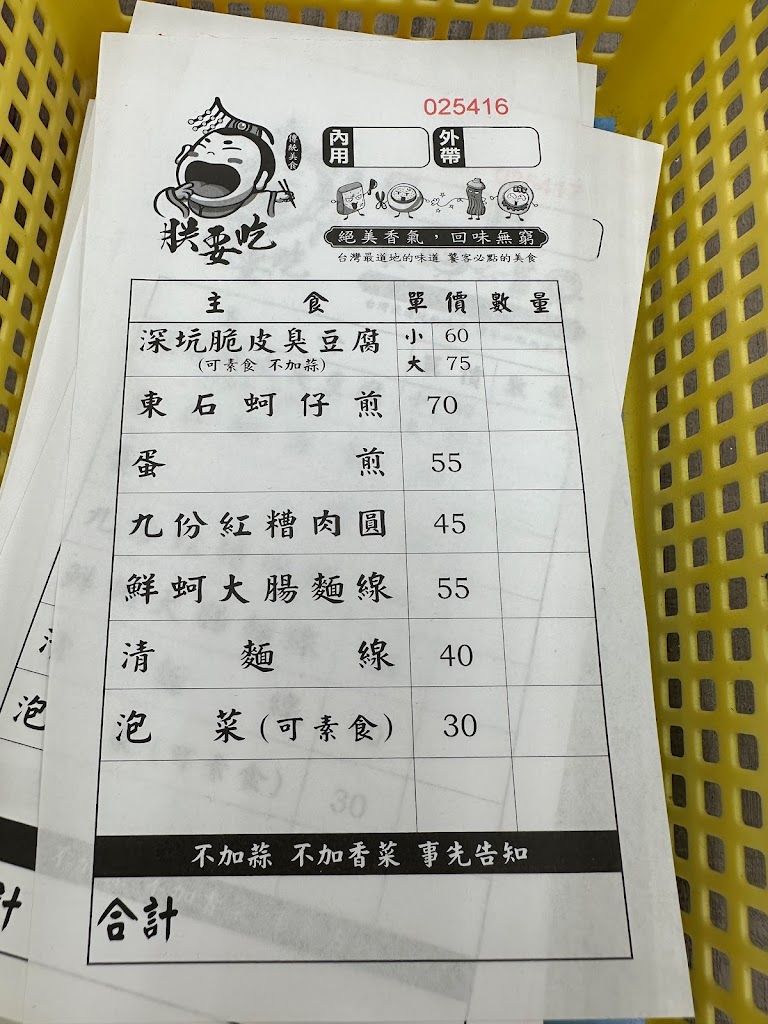 025416
傳統美食
內用
外帶
朕要吃
絕美香氣，回味無窮
台灣最道地的味道 饕客必點的美食
主食 單價 數量
深坑脆皮臭豆腐 小 60
(可素食 不加蒜) 大 75
東石蚵仔煎 70
蛋煎 55
九份紅糟肉圓 45
鮮蚵大腸麵線 55
清麵線 40
泡菜(可素食) 30
不加蒜 不加香菜 事先告知
合計
泡
計